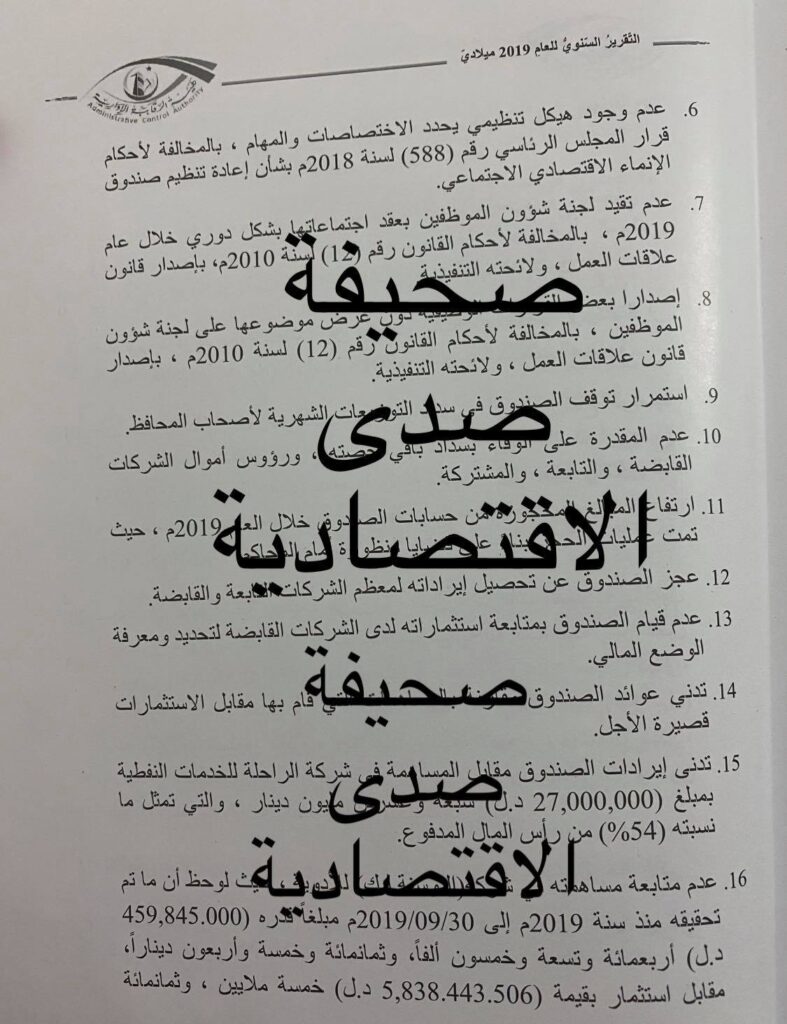 التقرير السنوي للعام 2019 ميلادي
هيئة الرقابة الإدارية
Administrative Control Authority
6. عدم وجود هيكل تنظيمي يحدد الاختصاصات والمهام ، بالمخالفة لأحكام
قرار المجلس الرئاسي رقم (588) لسنة 2018م بشأن إعادة تنظيم صندوق
الإنماء الاقتصادي الاجتماعي.
7. عدم تقيد لجنة شؤون الموظفين بعقد اجتماعاتها بشكل دوري خلال عام
2019م ، بالمخالفة لأحكام القانون رقم (12) لسنة 2010م، بإصدار قانون
علاقات العمل ، ولائحته التنفيذية
صحيفة
8. إصدارا بعض دون عرض موضوعها على لجنة شؤون
الموظفين ، بالمخالفة لأحكام القانون رقم (12) لسنة 2010م ، بإصدار
قانون علاقات العمل ، ولائحته التنفيذية.
9. استمرار توقف الصندوق في سداد التوزيعات الشهرية لأصحاب المحافظ.
صدى
10. عدم المقدرة على الوفاء بسداد باقي حصته ، ورؤوس أموال الشركات
القابضة ، والتابعة ، والمشتركة.
11. ارتفاع المبالغ المحجوزة من حسابات الصندوق خلال العام 2019م ، حيث
الاقتصادية
تمت عمليات الحجز بناء على قضايا منظورة أمام المحاكم
12. عجز الصندوق عن تحصيل إيراداته لمعظم الشركات التابعة والقابضة.
13. عدم قيام الصندوق بمتابعة استثماراته لدى الشركات القابضة لتحديد ومعرفة
الوضع المالي.
صحيفة
14. تدني عوائد الصندوق التي قام بها مقابل الاستثمارات
قصيرة الأجل.
15. تدنى إيرادات الصندوق مقابل المساهمة في شركة الراحلة للخدمات النفطية
صدى
بمبلغ (27,000,000 د.ل) سبعة وعشرين مليون دينار ، والتي تمثل ما
نسبته (54%) من رأس المال المدفوع.
الاقتصادية
16. عدم متابعة مساهمته في للأدوية ، حيث لوحظ أن ما تم
تحقيقه منذ سنة 2019م إلى 2019/09/30م مبلغاً قدره (459,845.000
د.ل) أربعمائة وتسعة وخمسون ألفاً، وثمانمائة وخمسة وأربعون ديناراً،
مقابل استثمار بقيمة (5,838.443.506 د.ل) خمسة ملايين ، وثمانمائة